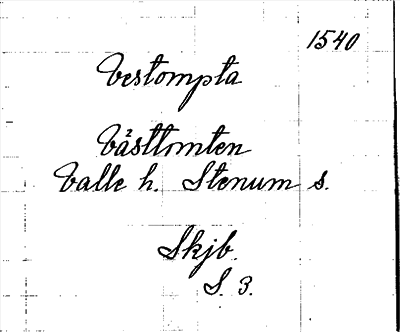 1540
Vestompta
Västtomten
Valle h. Stenum s.
Skjb.
S. 3.